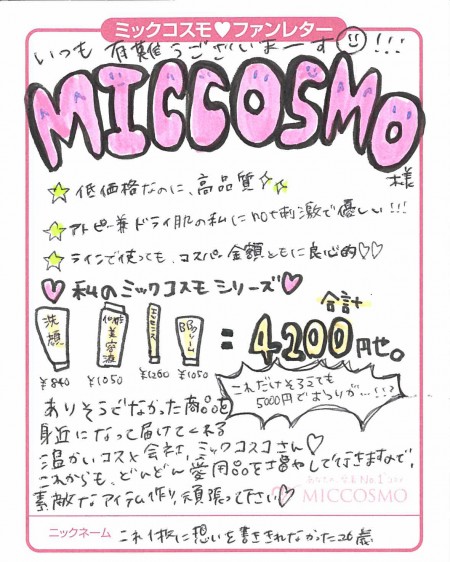 ミックコスモ♥ファンレター
いつも有難うございまーす!!!
MICCOSMO
様
低価格なのに、高品質
アトピー兼ドライ肌の私にnot刺激で優しい!!!
ラインで使っても、コスパ、金額ともに良心的♡♡
♡私のミックコスモシリーズ♡
洗顔
美容液
エッセンス
BBクリーム
¥840 ¥1050 ¥1260 ¥1050
合計
= 4200円せ。
これだけそろえても
5000円でおつりが…!!?
ありそうでなかった商品を
身近になって届けてくれる
温かいコスメ会社、ミックコスコさん♡
これからも、どんどん愛用品を増やして行きますので、
素敵なアイテム作り、頑張って下さい♡
MICCOSMO
ニックネーム これ1枚に想いを書ききれなかった26歳